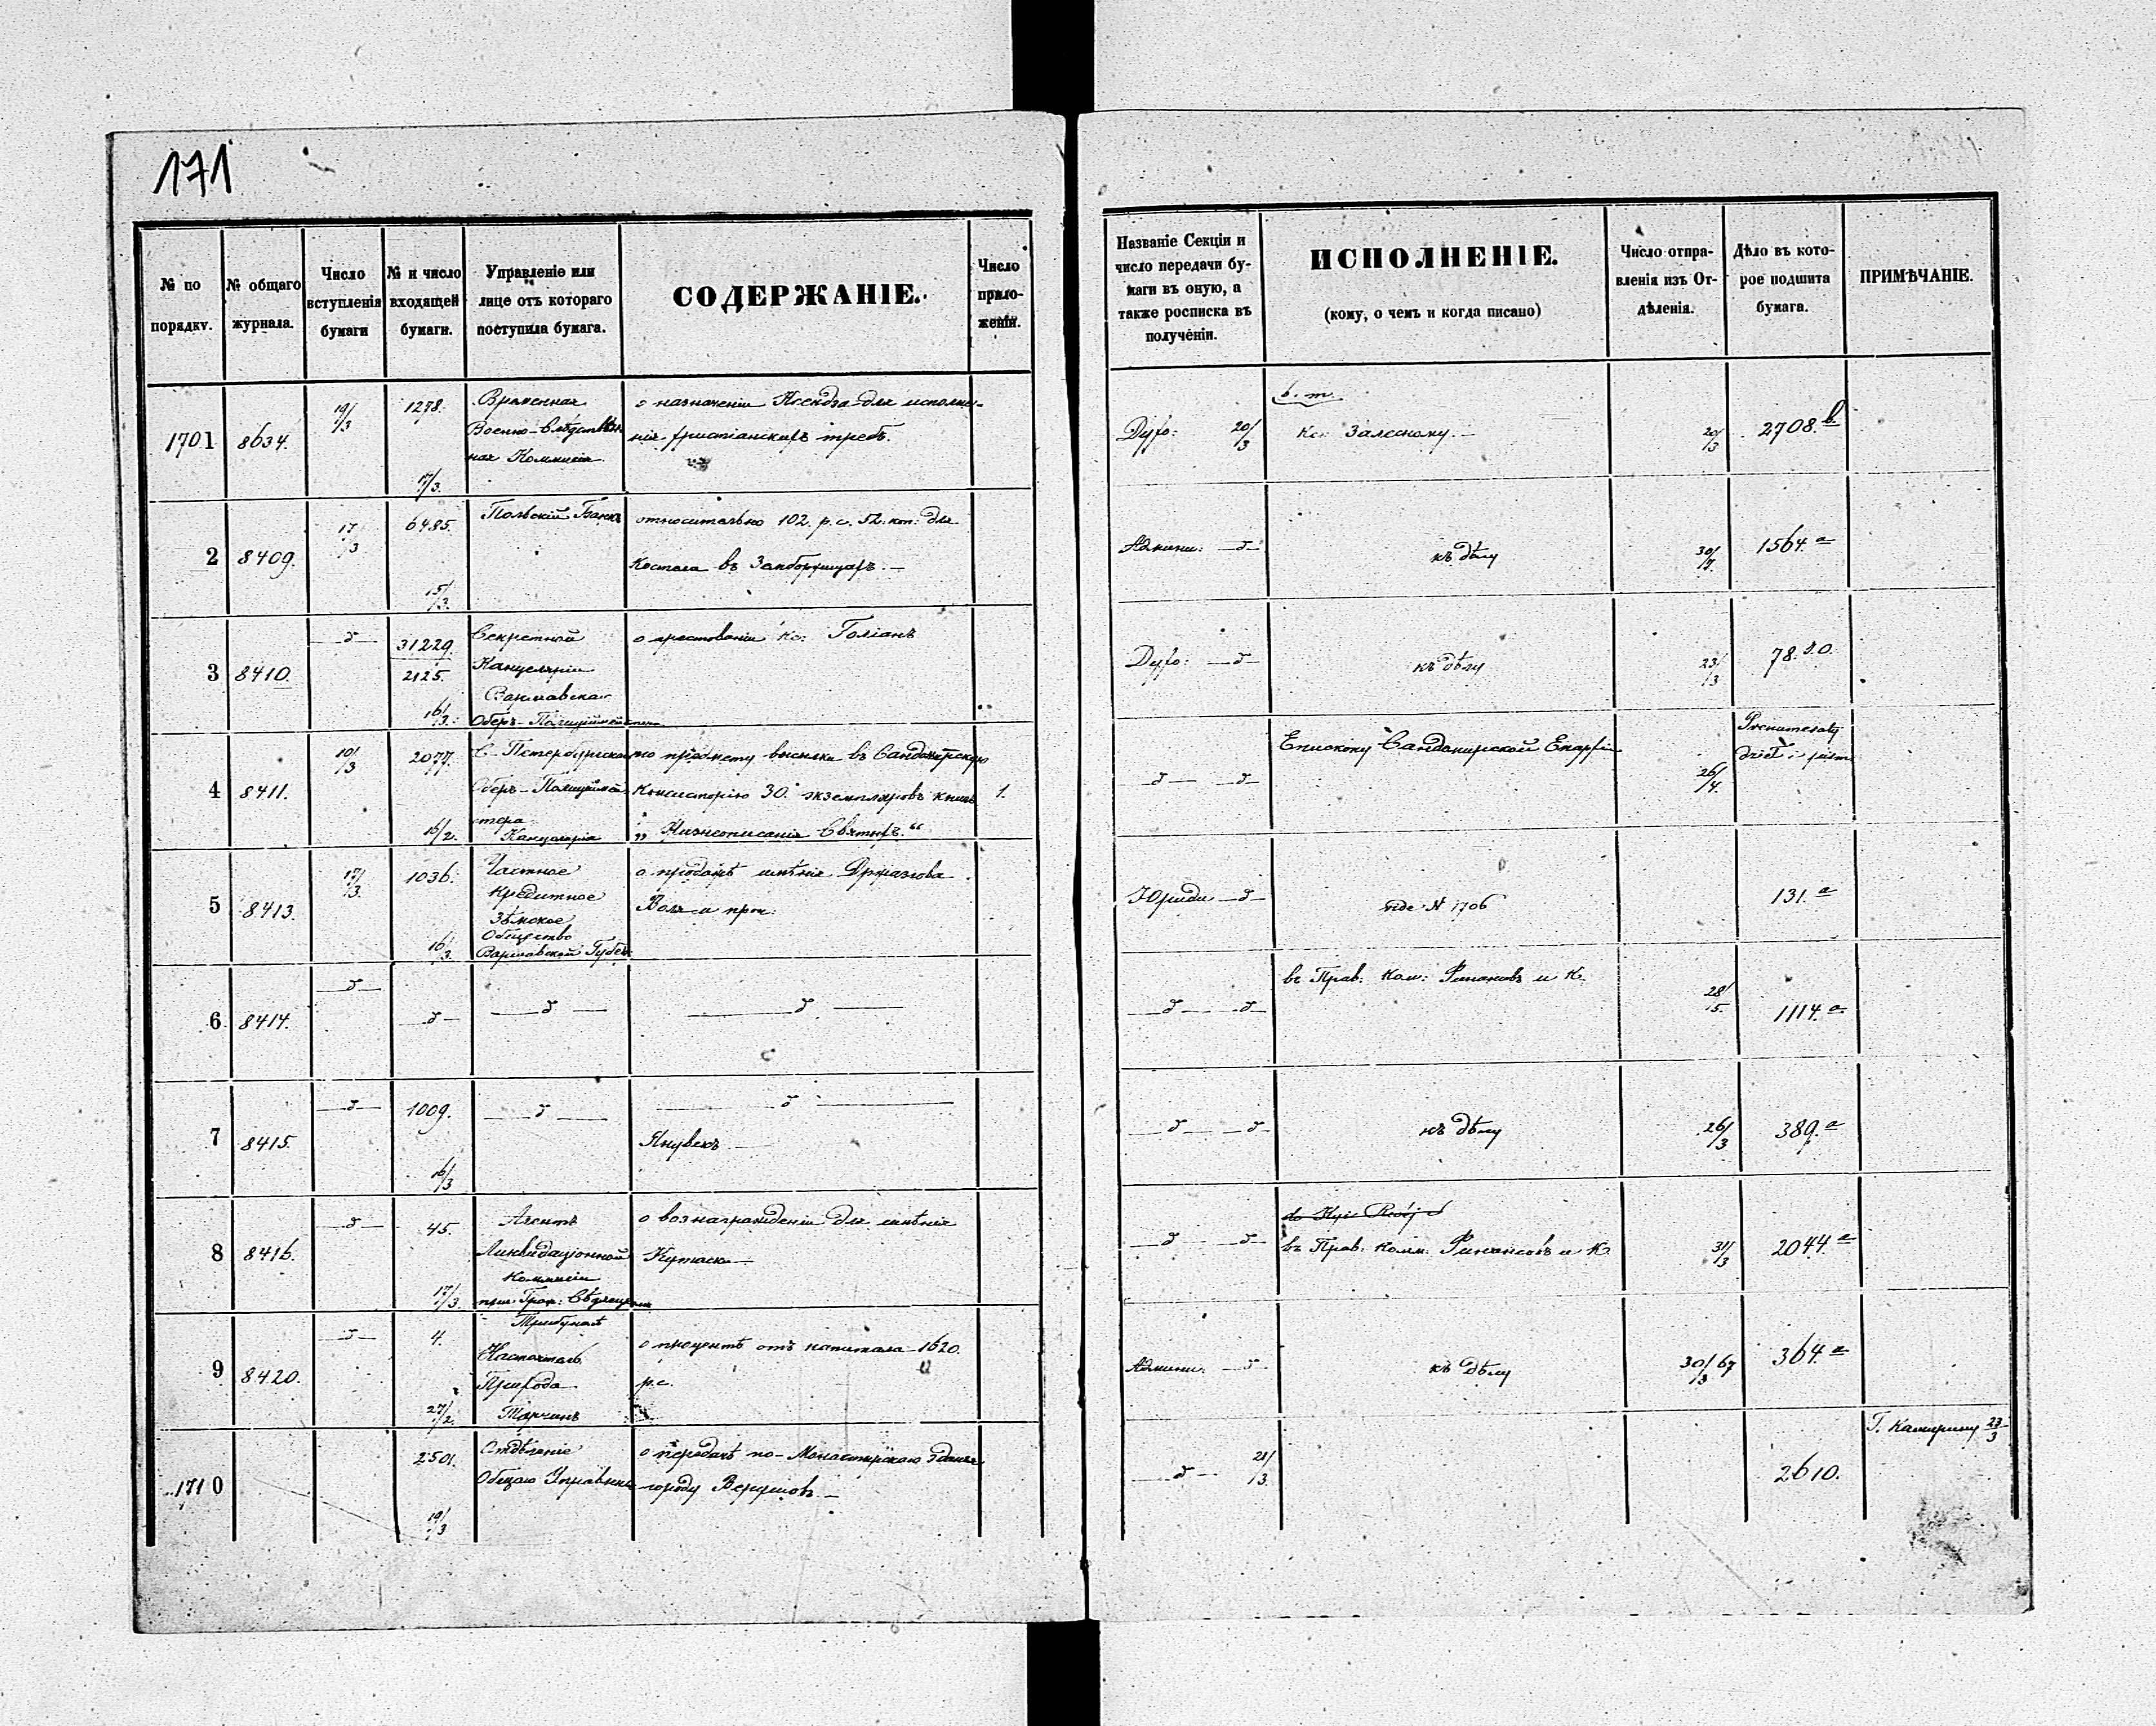 171
№ по порядку.
№ общаго журнала.
Число вступленія бумаги
№ и число входящей бумаги.
Управленіе или лице отъ котораго поступила бумага.
СОДЕРЖАНІЕ.
Число приложеній.
Названіе Секціи и число передачи бумаги въ оную, а также росписка въ полученіи.
ИСПОЛНЕНІЕ.
(кому, о чемъ и когда писано)
Число отправленія изъ Отдѣленія.
Дѣло въ которое подшита бумага.
ПРИМѢЧАНІЕ.
1701 8634. 19/3 1278. 17/3.
Временная
Военно-Слѣдствен
ная Коммисія.
о назначеніи Ксендза для исполне-
нія христіанскихъ требъ.
Духо: 20/3
в. т.
Кс: Залескому.
20/3 2708. в.
2 8409. 17/3 6485. 15/3.
Польскій Банкъ
относительно 102. р.с. 52. коп: для
Костела въ
Админи: —д—
къ дѣлу
1564. а
3 8410. —д— 31229. 2125. 16/3.
Секретной
Канцеляріи
Варшавска
Оберъ-Полицій
о арестованіи Кс: Голіанъ
Духо: —д—
къ дѣлу
23/3 78.
4 8411. 10/3 2077. 16/2.
С. Петербургска
Оберъ-Полиційме
стера
Канцелярія
по предмету высылки въ Сандомірскую
Консисторію 30. экземпляровъ книгъ
„Жизнеописанія Святыхъ.“
1.
—д— —д—
Епископу Сандомирской Епархіи
26/4.
dzieł i pism
5 8413. 17/3. 1036. 16/3.
Частное
Кредитное
Земское
Общество
Варшавской Губер
о продажѣ имѣнія
Воля и проч:
Юриди —д—
vide № 1706
131. а
6 8414. —д— —д— —д— —д—
—д— —д—
въ Прав: Ком: Финансовъ и К.
28/5. 1114. а
7 8415. —д— 1009. 16/3 —д— —д—
Янувекъ
—д— —д—
къ дѣлу
26/3 389. а
8 8416. —д— 45. 17/3.
Агентъ
Ликвидаціонной
Коммисіи
о вознагражденіи для имѣнія
—д— —д—
въ Прав: Комм: Финансовъ и К.
31/3 2044. а
9 8420. —д— 4. 27/2.
Трибуналѣ
Настоятель
Прихода
о процентѣ отъ капитала 1620.
р.с.
Админи: —д—
къ дѣлу
30/3 67 364. а
1710 2501. 19/3
Отдѣленіе
Общаго Управленія
о передачѣ по-Монастырскаго зданія
городу Верушовъ
—д— 21/3.
2610.
Г. 23/3